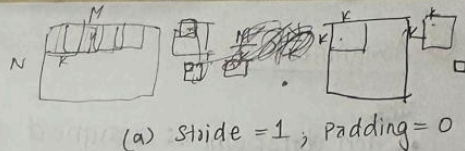 M
K K
N K K K
K
(a) Stride = 1, Padding = 0